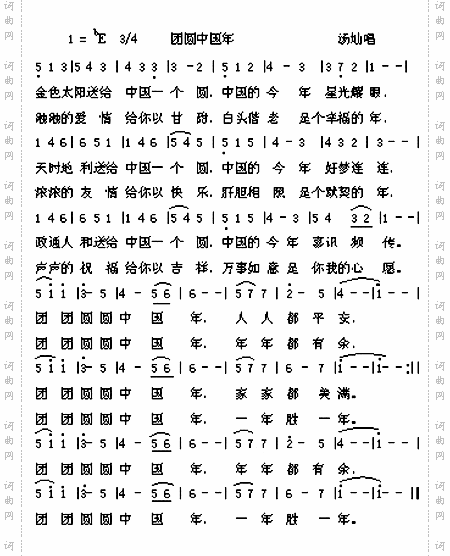 1 = ♭E 3/4 团圆中国年 汤灿唱
5 1 3|5 4 3 |4 3 3 |3 - 2 |5 1 2 |4 - 3 |3 7 2 |1 - - |
金色太阳送给 中国一 个 圆, 中国的 今 年 星光耀 眼,
融融的爱 情 给你以 甘 甜, 白头偕 老 是个幸福的 年,
1 4 6| 6 5 1 |1 4 6 |5 4 5 |5 1 5 |4 - 3 |4 3 2 |3 - - |
天时地 利送给 中国一 个 圆, 中国的 今 年 好梦连 连,
浓浓的 友 情 给你以 快 乐, 肝胆相 照 是个默契的 年,
1 4 6| 6 5 1 |1 4 6 |5 4 5 |5 1 5 |4 - 3 |5 4 3 2 |1 - - |
政通人 和送给 中国一 个 圆, 中国的 今 年 喜讯 频 传。
声声的 祝 福 给你以 吉 祥, 万事如 意 是 你我的心 愿。
5 i i |3 - 5 |4 - 5 6 |6 - - |5 7 7 |2 - 5 |4 - - |i - - |
团 团 圆 圆 中 国 年, 人 人 都 平 安,
团 团 圆 圆 中 国 年, 年 年 都 有 余,
5 i i |3 - 5 |4 - 5 6 |6 - - |5 7 7 |6 - 7 |i - - |i - - :||
团 团 圆 圆 中 国 年, 家 家 都 美 满。
团 团 圆 圆 中 国 年, 一 年 胜 一 年。
5 i i |3 - 5 |4 - 5 6 |6 - - |5 7 7 |2 - 5 |4 - - |i - - |
团 团 圆 圆 中 国 年, 年 年 都 有 余,
5 i i |3 - 5 |4 - 5 6 |6 - - |5 7 7 |6 - 7 |i - - |i - - ||
团 团 圆 圆 中 国 年, 一 年 胜 一 年。